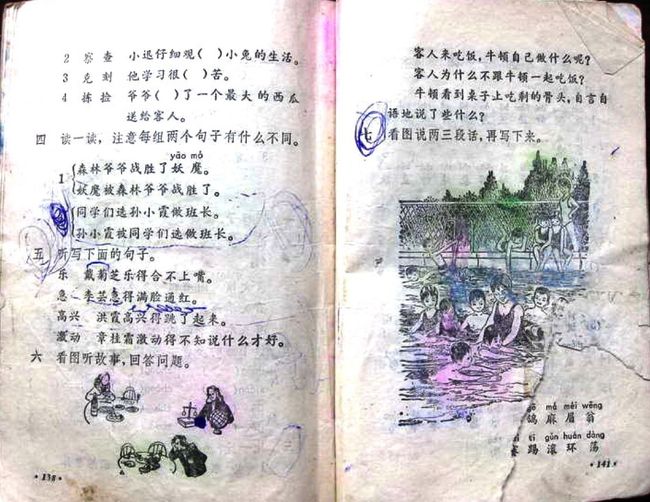 2 察 查 小迟仔细观( )小兔的生活。
3 克 刻 他学习很( )苦。
4 拣 捡 爷爷( )了一个最大的西瓜
送给客人。
四 读一读,注意每组两个句子有什么不同。
yāo mó
1 森林爷爷战胜了妖魔。
妖魔被森林爷爷战胜了。
同学们选孙小霞做班长。
孙小霞被同学们选做班长。
五 听写下面的句子。
乐 戴菊芝乐得合不上嘴。
急 李芸急得满脸通红。
高兴 洪霞高兴得跳了起来。
激动 章桂霜激动得不知说什么才好。
六 看图听故事,回答问题。
·138·
客人来吃饭,牛顿自己做什么呢?
客人为什么不跟牛顿一起吃饭?
牛顿看到桌子上吃剩的骨头,自言自
语地说了些什么?
七 看图说两三段话,再写下来。
má méi wēng
鸽 麻 眉 翁
tī gǔn huán dàng
踢 滚 环 荡
·141·